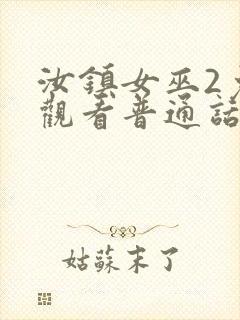 汝鎮女巫2
觀看普通話
姑蘇末了